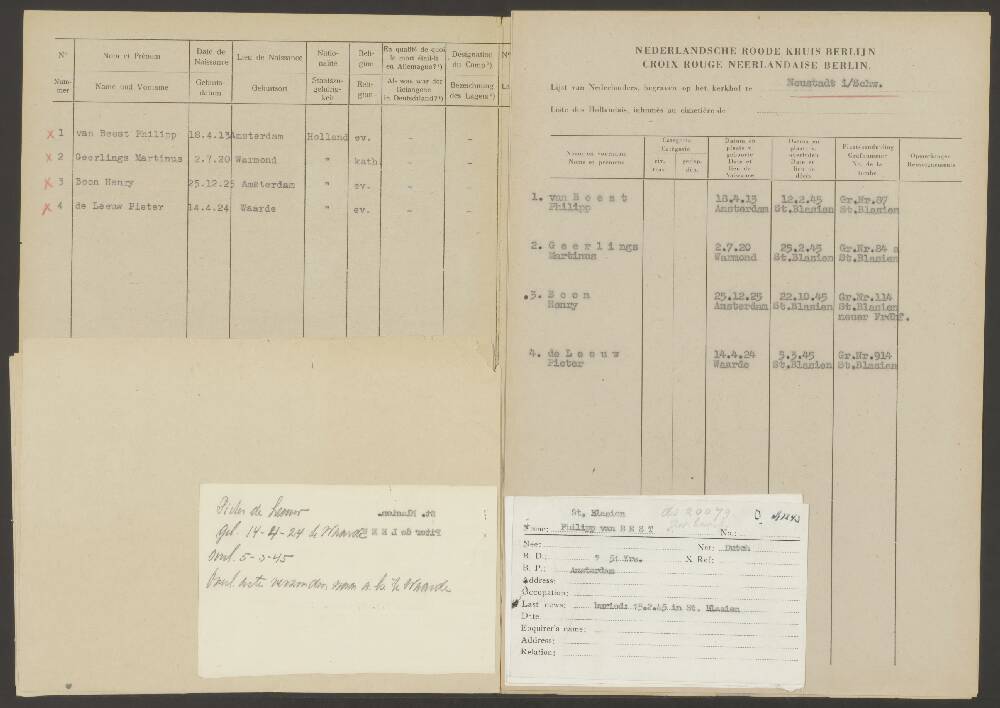 N° Nom et Prénom Date de Naissance Lieu de Naissance Natio-nalité Reli-gion En qualité de quoi le mort était-il en Allemagne?¹) Désignation du Camp²) N°
Num-mer Name und Vorname Geburts-datum Geburtsort Staatszu-gehörig-keit Reli-gion Als was war der Gefangene in Deutschland?¹) Bezeichnung des Lagers²)
x 1 van Beest Philipp 18.4.13 Amsterdam Holland ev. - -
x 2 Geerlings Martinus 2.7.20 Warmond " kath. - -
x 3 Boon Henry 25.12.25 Amsterdam " ev. - -
x 4 de Leeuw Pieter 14.4.24 Waarde " ev. - -
NEDERLANDSCHE ROODE KRUIS BERLIJN
CROIX ROUGE NEERLANDAISE BERLIN.
Lijst van Nederlanders, begraven op het kerkhof te Neustadt i/Schw.
Liste des Hollandais, inhumés au cimetière de
Naam en voornaam
Noms et prénoms
Categorie
Catégorie
Datum en plaats v. geboorte
Date et lieu de Naissance
Datum en plaats v. overlijden
Date et lieu de décès
Plaatsaanduiding
Grafnummer
No. de la tombe
Opmerkingen
Renseignements
1. van B e e s t 18.4.13 12.2.45 Gr.Nr.87
Philipp Amsterdam St.Blasien St.Blasien
2. G e e r l i n g s 2.7.20 25.2.45 Gr.Nr.84 a
Martinus Warmond St.Blasien St.Blasien
3. B o o n 25.12.25 22.10.45 Gr.Nr.114
Henry Amsterdam St.Blasien St.Blasien
neuer Frdhf.
4. de L e e u w 14.4.24 5.3.45 Gr.Nr.914
Pieter Waarde St.Blasien St.Blasien
Pieter de Leeuw
geb. 14-4-24 te Waarde
overl. 5-3-45
St. Blasien
Philipp van B E E S T
Name: No.:
Nee: Nat: Dutch
B. D.: ? 51 Yrs. X Ref:
B. P.: Amsterdam
Address:
Occupation:
Last news: buried: 15.2.45 in St. Blasien
Date
Enquirer's name:
Address:
Relation: